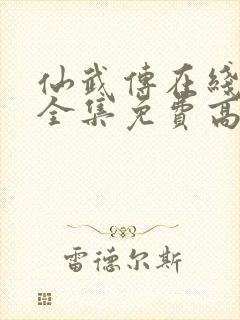 仙武傳在綫
全集免費高
雷德尔斯